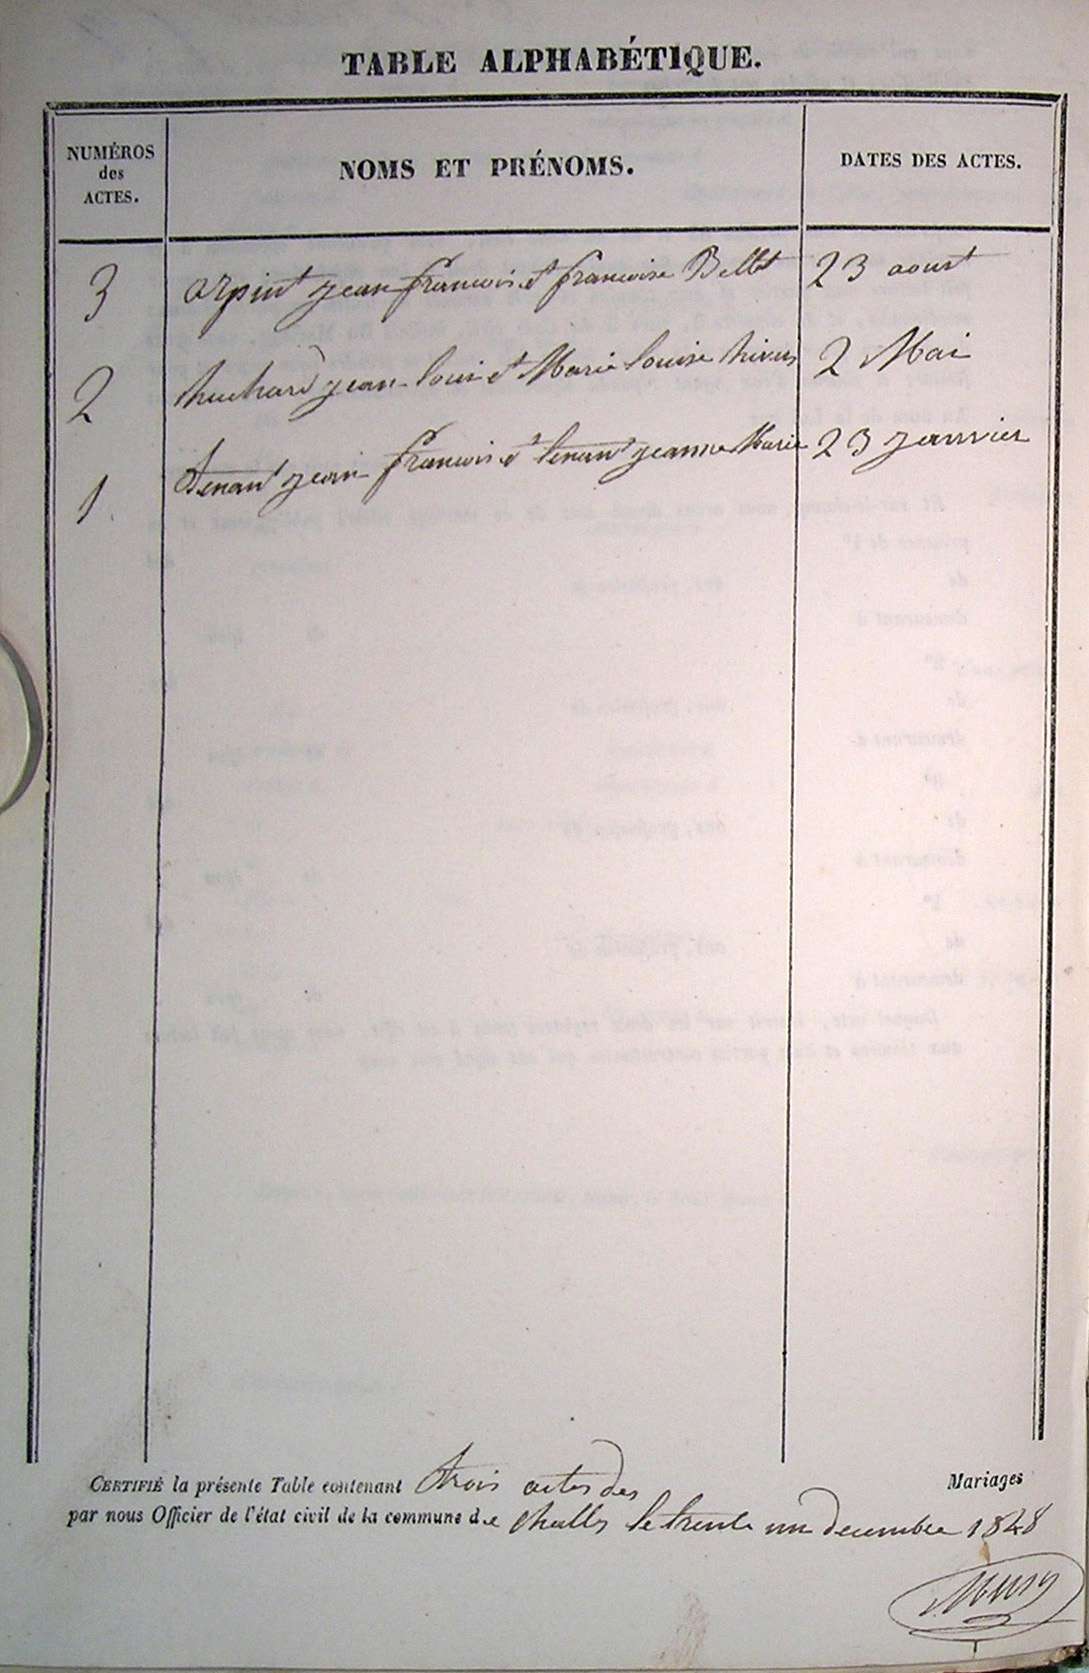 TABLE ALPHABÉTIQUE.
NUMÉROS des ACTES. NOMS ET PRÉNOMS. DATES DES ACTES.
3 arpint jean francois et francoise Bellet 23 aoust
2 huchard jean louis et Marie louise 2 Mai
1. tenant jean francois et tenant jeanne Marie 23 janvier
CERTIFIÉ la présente Table contenant trois actes des Mariages
par nous Officier de l'état civil de la commune de le trente un decembre 1848